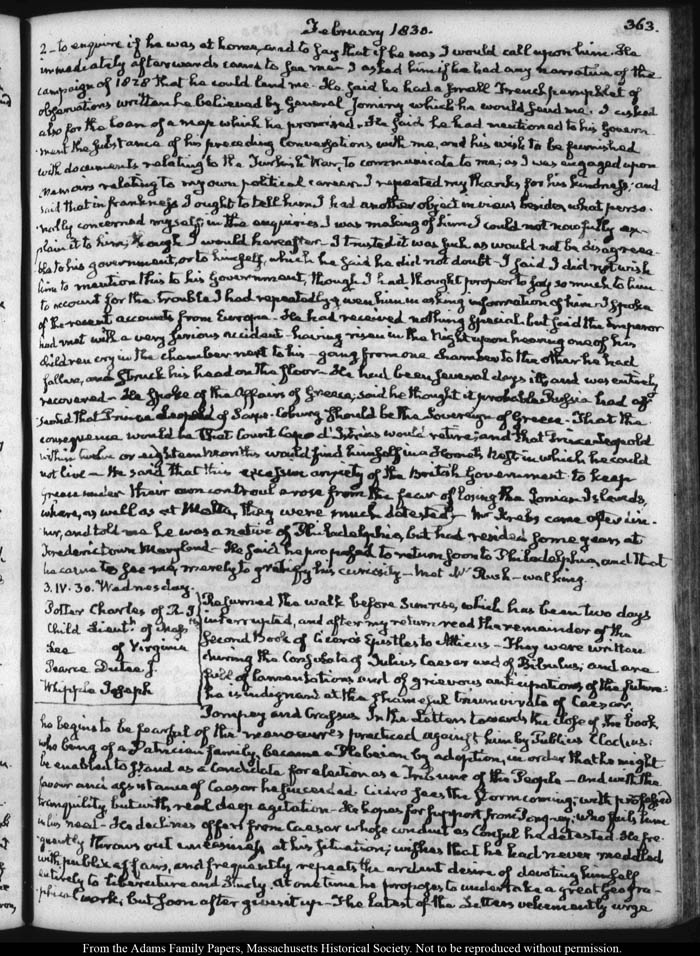 February 1830.
363.
2 to enquire if he was at home, and to say that if he was I would call upon him. He
immediately afterwards came to see me. I asked him if he had any narrative of the
campaign of 1828 that he could lend me. He said he had a small French pamphlet of
observations written he believed by General Jomini which he would send me. I asked
also for the loan of a map which he promised. He said he had mentioned to his Govern-
ment the substance of his preceding conversations with me, and his wish to be furnished
with documents relating to the Turkish War, to communicate to me; as I was engaged upon
Memoirs relating to my own political career. I repeated my thanks for his kindness, and
said that in frankness I ought to tell him I had another object in view besides what perso-
nally concerned myself; in the enquiries I was making of him. I could not now fully ex-
plain it to him; though I would hereafter. I trusted it was such as would not be disagreea-
ble to his government, or to himself, which he said he did not doubt. I said I did not wish
him to mention this to his Government, though I had thought proper to say so much to him
to account for the trouble I had repeatedly given him in asking information of him. I spoke
of the recent accounts from Europe. He had received nothing special but said the Emperor
had met with a very serious accident. having risen in the Night upon hearing one of his
children cry in the chamber next to his. going from one chamber to the other he had
fallen, and struck his head on the floor. He had been several days ill, and was entirely
recovered. He spoke of the Affairs of Greece; said he thought it probable Russia had as-
sented that Prince Leopold of Saxe-Coburg should be the Sovereign of Greece. That the
consequence would be that Count Capo d'Istrias would retire; and that Prince Leopold
within twelve or eighteen months would find himself in a Hornet's Nest in which he could
not live. He said that this excessive anxiety of the British Government to keep
Greece under their own controul arose from the fear of losing the Ionian Islands,
where, as well as at Malta, they were much detested. Mr Krebs came after din-
ner, and told me he was a native of Philadelphia, but had resided some years at
Fredericktown Maryland. He said he proposed to return soon to Philadelphia, and that
he came to see me, merely to gratify his curiosity. Met Mr Rush walking.
3. IV. 30. Wednesday.
Potter Charles of R. I
Child Lieutt of Massts
Lee of Virginia
Pearce Dutee J.
Whipple Joseph
Resumed the walk before Sunrise, which has been two days
interrupted, and after my return read the remainder of the
Second Book of Cicero's Epistles to Atticus. They were written
during the Consulate of Julius Caesar and of Bibulus; and are
full of lamentations and of grievous anticipations of the future:
he is indignant at the shameful triumvirate of Caesar,
Pompey and Crassus. In the Letters towards the close of the book
he begins to be fearful of the manoeuvres practiced against him by Publius Clodius:
who being of a Patrician family, became a Plebeian by adoption, in order that he might
be enabled to stand as a Candidate for election as a Tribune of the People. And with the
favour and assistance of Caesar he succeeded. Cicero sees the storm coming; with professed
tranquility but with real deep agitation. He hopes for support from Pompey; who fails him
in his need. He declines offers from Caesar whose conduct as Consul he detested. He fre-
quently throws out uneasiness at his situation; wishes that he had never meddled
with public affairs, and frequently repeats the ardent desire of devoting himself
entirely to literature and Study. At one time he proposes to undertake a great geogra-
phical work; but soon after gives it up. The latest of the Letters vehemently urge
From the Adams Family Papers, Massachusetts Historical Society. Not to be reproduced without permission.